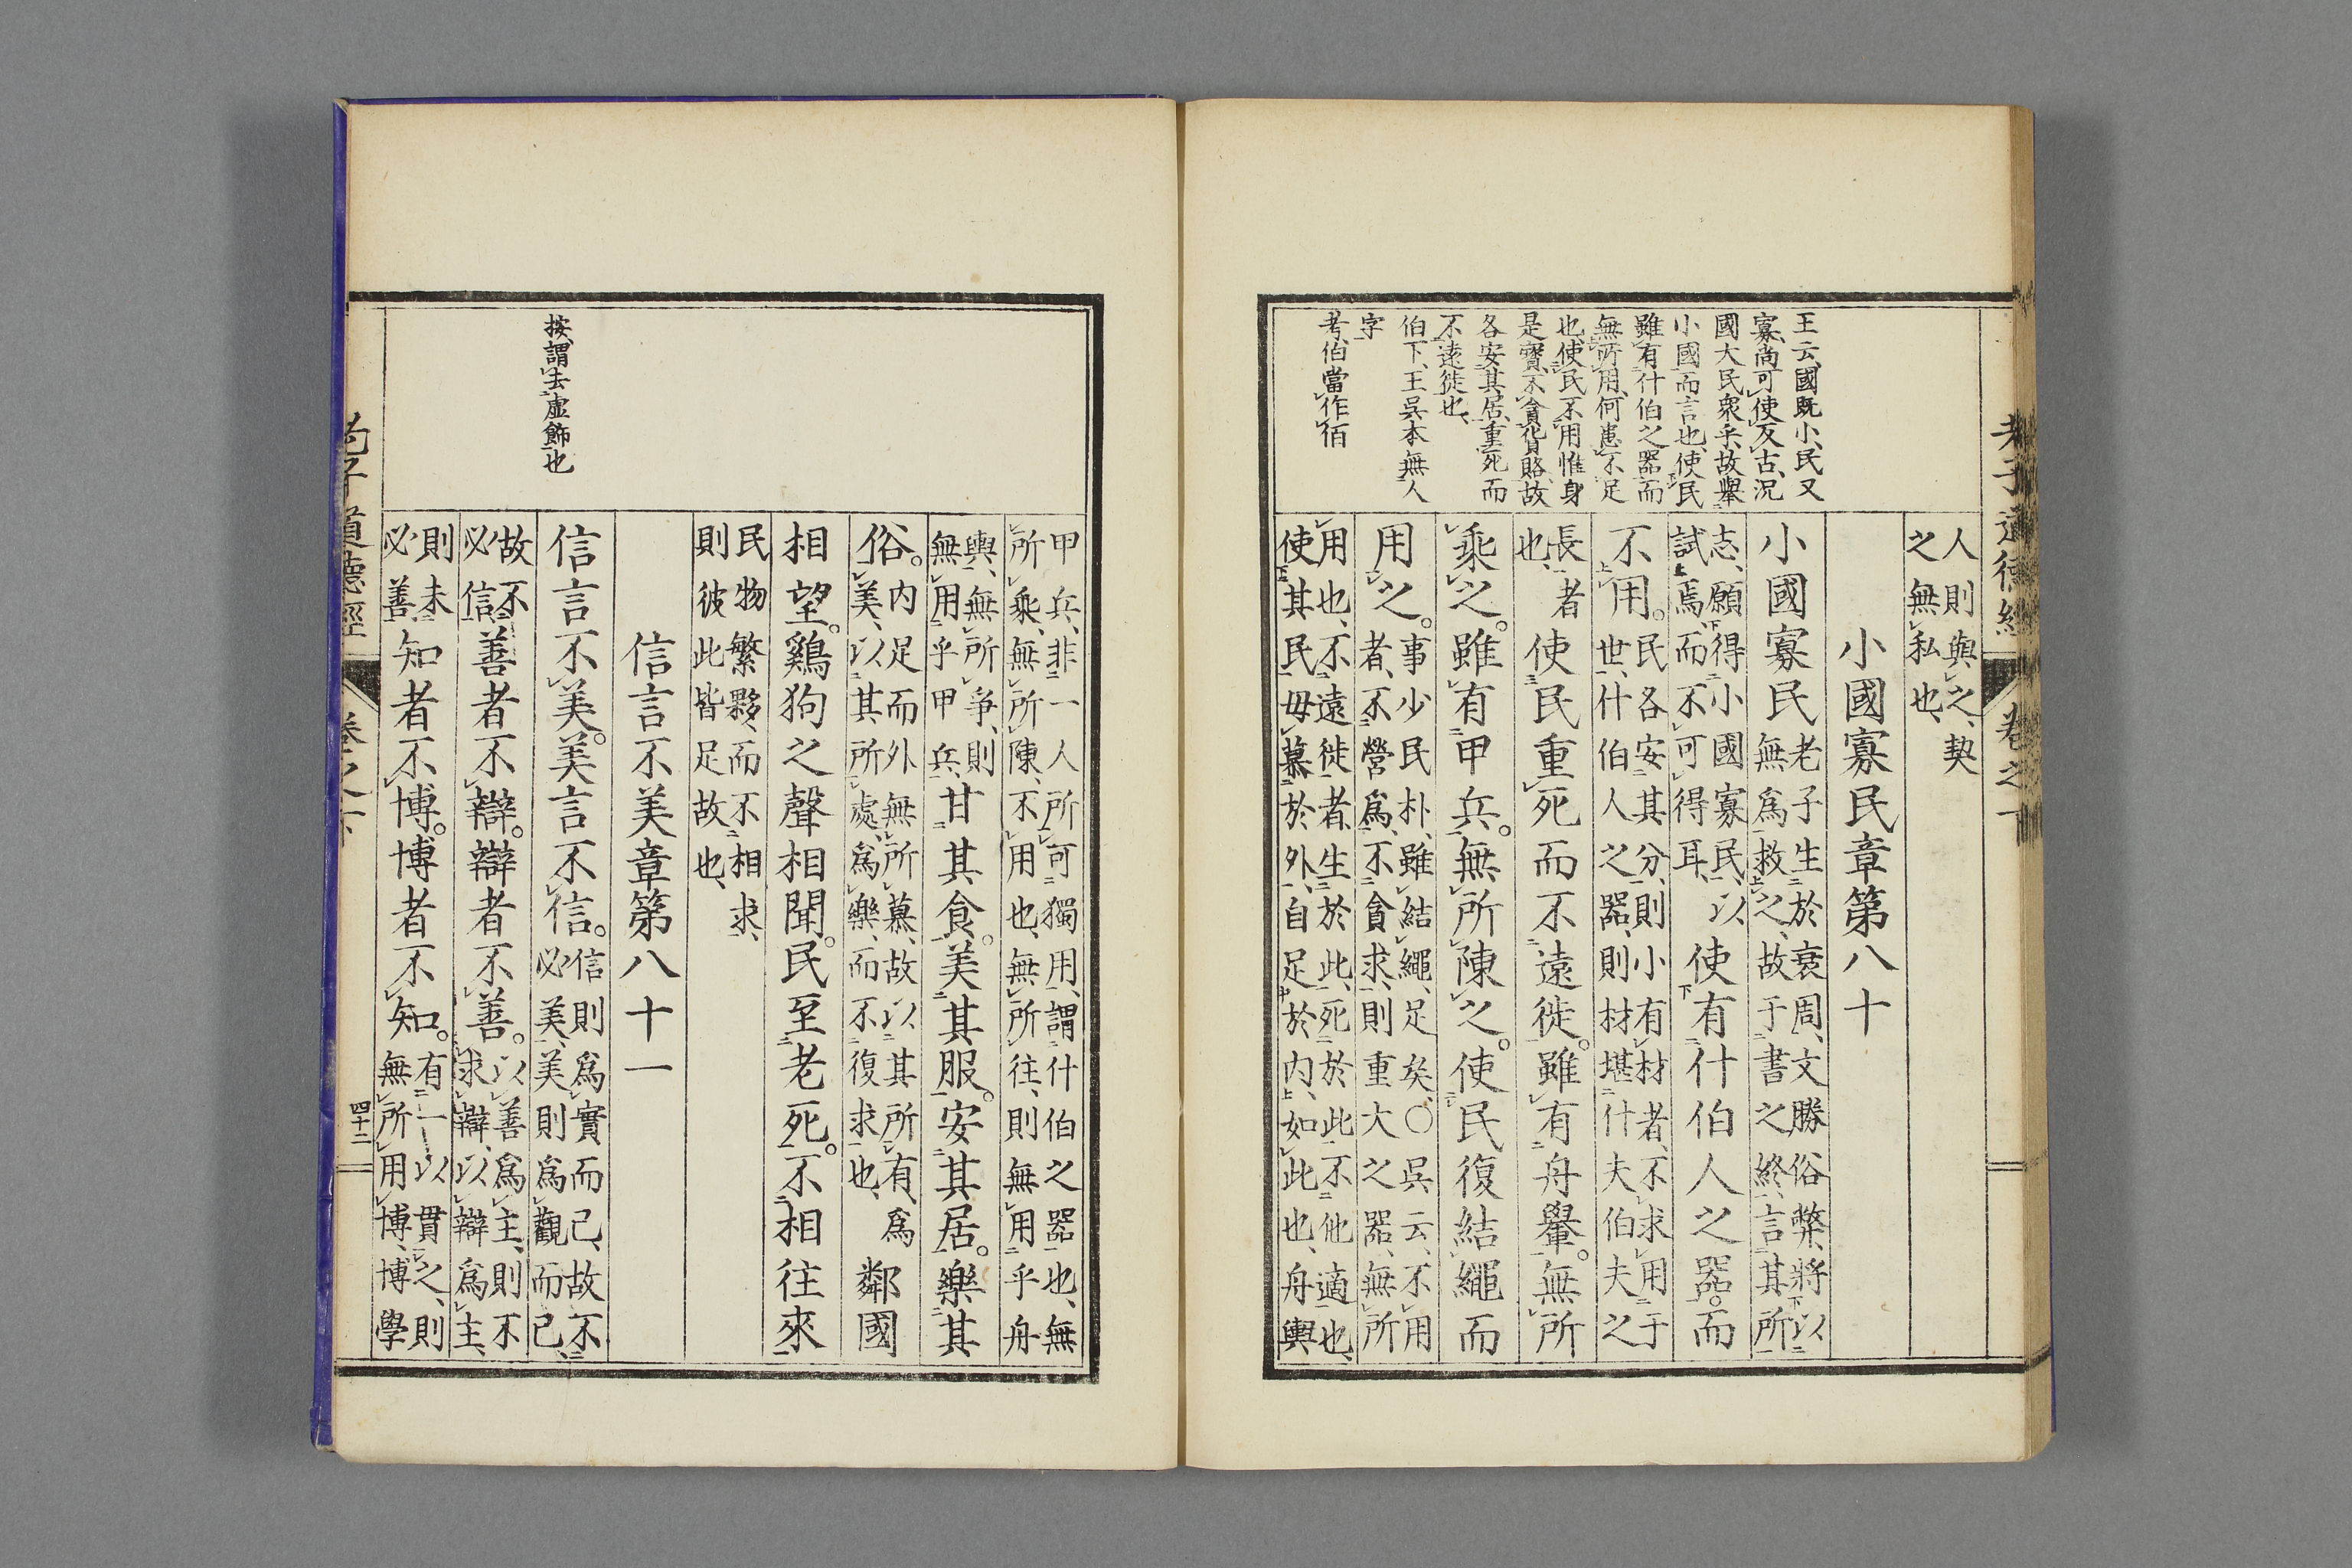 老子道德經 卷之下
王云、國既小、民又
寡、尚可使反古、況
國大民衆乎、故舉
小國而言也、使民
雖有什伯之器而
無所用、何患不足
也、使民不用惟身
是寶、不貪貨賂、故
各安其居、重死而
不遠徙也、
伯下、王吳本無人
字
考、伯當作佰
人則與之、契
之無私也、
小國寡民章第八十
小國寡民 老子生於衰周、文勝俗弊、將以
無爲救之、故于書之終、言其所
志、願得小國寡民、以
試焉、而不可得耳、 使有什伯人之器。而
不用。 民各安其分、則小有材者、不求用于
世、什伯人之器、則材堪什夫伯夫之
長者
也、 使民重死而不遠徙。雖有舟轝。無所
乘之。雖有甲兵。無所陳之。使民復結繩而
用之。 事少民朴、雖結繩、足矣、〇吳云、不用
者、不營爲、不貪求、則重大之器、無所
用也、不遠徙者、生於此、死於此、不他適也、
使其民毋慕於外、自足於内、如此也、舟輿
按、謂去虛飾也
甲兵、非一人所可獨用、謂什伯之器也、無
所乘、無所陳、不用也、無所往、則無用乎舟
輿、無所爭、則
無用乎甲兵、 甘其食。美其服。安其居。樂其
俗。 内足而外無所慕、故以其所有、爲
美、以其所處、爲樂、而不復求也、 鄰國
相望。鷄狗之聲相聞。民至老死。不相往來
民物繁夥、而不相求、
則彼此皆足故也、
信言不美章第八十一
信言不美。美言不信。 信則爲實而已、故不
必美、美則爲觀而已、
故不
必信 善者不辯。辯者不善。 以善爲主、則不
求辯、以辯爲主、
則未
必善 知者不博。博者不知。 有一以貫之、則
無所用博、博學
老子道德經 卷之下 四十二